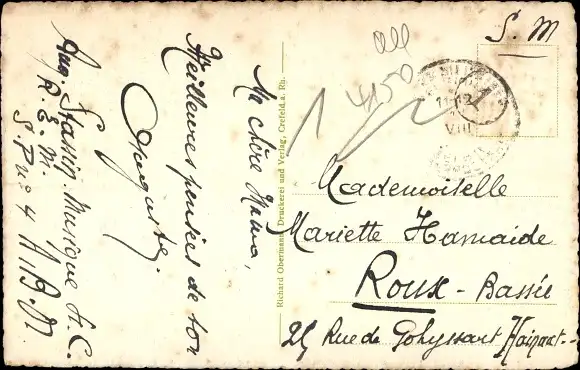 S. M
all
4150
1
VIII
Ma chère Mima,
Meilleures pensées de ton
Auguste.
Musique A. C.
R. E. M.
S. P. 4
Richard Obermann, Druckerei und Verlag, Crefeld a. Rh.
Mademoiselle
Mariette Hamaide
Roux - Bassée
25 Rue de Gohyssart Hainaut -